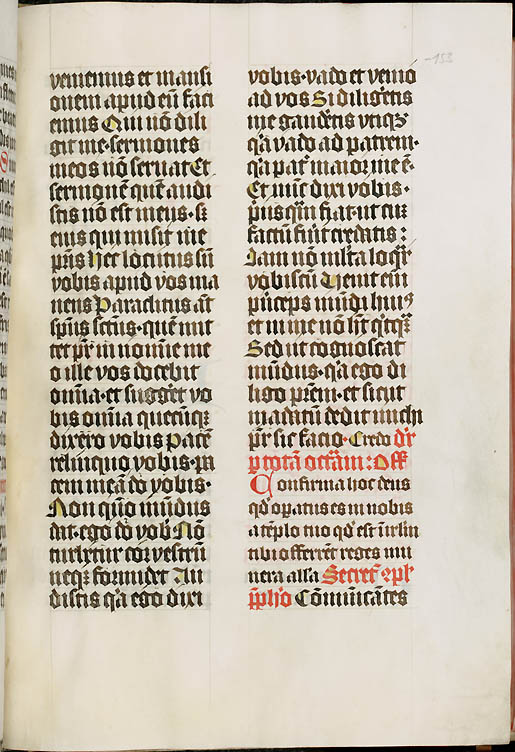 veniemus et mansi
onem apud eū faci
emus Qui nō dili
git me· sermones
meos nō seruat Et
sermonē quē audi
stis nō est meus· sꝫ
eius qui misit me
pr̄is Hec locutus sū
vobis apud vos ma
nens Paraclitus aūt
spūs sctūs· quē mit
tet pr̄ in nōmīe me
o ille vos docebit
om̄ia· et suggeret vo
bis om̄ia quecūqꝫ
dixero vobis Pacē
relinquo vobis· pa
cem meā dō vobis·
Non quō mūdus
dat· ego dō vob̄ Nō
turbetur cor vestrū
neqꝫ formidet Au
distis qͥa ego dixi
vobis· vado et venio
ad vos Si diligeretis
me gauderetis vtiqꝫ
qͥa vado ad patrem·
qͥa pat̄ maior me ē·
Et nūc dixi vobis·
priusqͣm fiat· ut cū
factū fuīt credatis:
Iam nō multa loqͣr
vobiscū Venit em̄
prīceps mūdi huiꝰ
et in me nō hꝫ qͥcqͣꝫ
Sed ut cognoscat
mūdus· qͥa ego di
ligo prēm· et sicut
mādatū dedit michi
pr̄ sic facio· Credo dr̄
ꝑ totā octām: Off
Confirma hoc deus
qd̓ oꝑatus es in nobis
a tēplo tuo qd̓ est ī irlm
tibi offerēt reges mu
nera alla Secret̄
Cōmunicātes
153